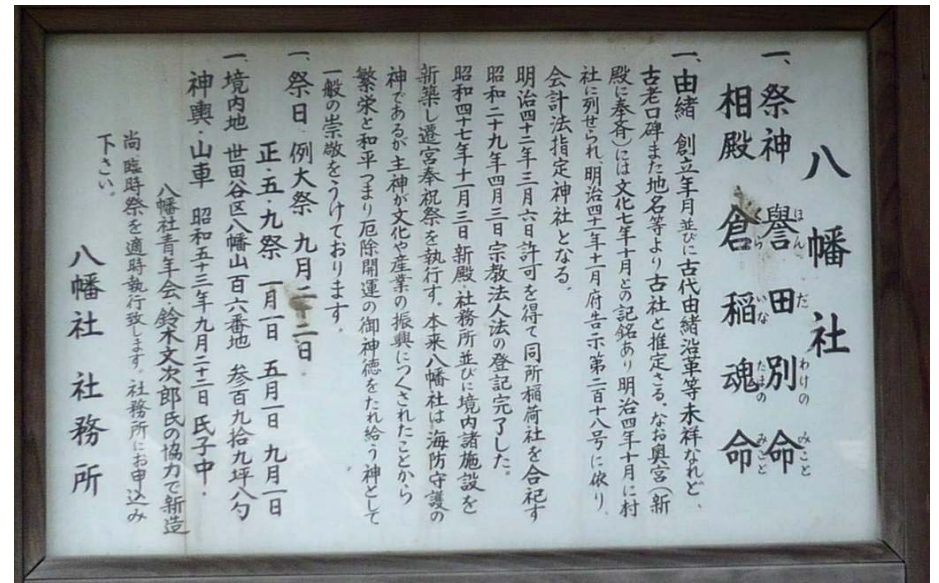 八幡社
一、祭神 譽田別命
相殿 倉稲魂命
一、由緒 創立年月並びに古代由緒沿革等未祥なれど、
古老口碑また地名等より古社と推定さる、なお奥宮(新
殿に奉斉)には文化七年十月との記銘あり明治四年十月に村
社に列せられ、明治四十一年十一月府告示第二百十八号に依り、
会計法指定神社となる。
明治四十二年三月六日許可を得て同所稲荷社を合祀す
昭和二十九年四月三日宗教法人法の登記完了した。
昭和四十七年十一月三日新殿・社務所並びに境内諸施設を
新築し遷宮奉祝祭を執行す。本来八幡社は海防守護の
神であるが主神が文化や産業の振興につくされたことから
繁栄と和平つまり厄除開運の御神徳をたれ給う神として
一般の崇敬をうけております。
一、祭日 例大祭 九月二十二日
正・五・九祭 一月一日 五月一日 九月一日
一、境内地 世田谷区八幡山百六番地 参百九拾九坪八勺
神輿・山車 昭和五十三年九月二十二日 氏子中・
八幡社青年会・鈴木文次郎氏の協力で新造
尚 臨時祭を適時執行致します。社務所にお申込み
下さい。
八幡社 社務所